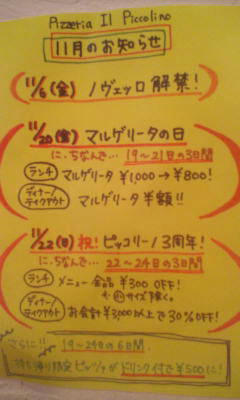 Pizzeria Il Piccolino
11月のお知らせ
11/6(金) ノヴェッロ解禁!
11/20(金) マルゲリータの日
に、ちなんで… 19〜21日の3日間
ランチ マルゲリータ ¥1,000→¥800!
ディナー/テイクアウト マルゲリータ 半額!!
11/22(日)祝!ピッコリーノ3周年!
に、ちなんで… 22〜24日の3日間
ランチ メニュー 全品 ¥300 OFF!
サイズ除く。
ディナー/テイクアウト お会計¥3,000以上で30%OFF!
さらに!! 19〜24日の6日間
持ち帰り限定 ピッツァがドリンク付で¥500に!